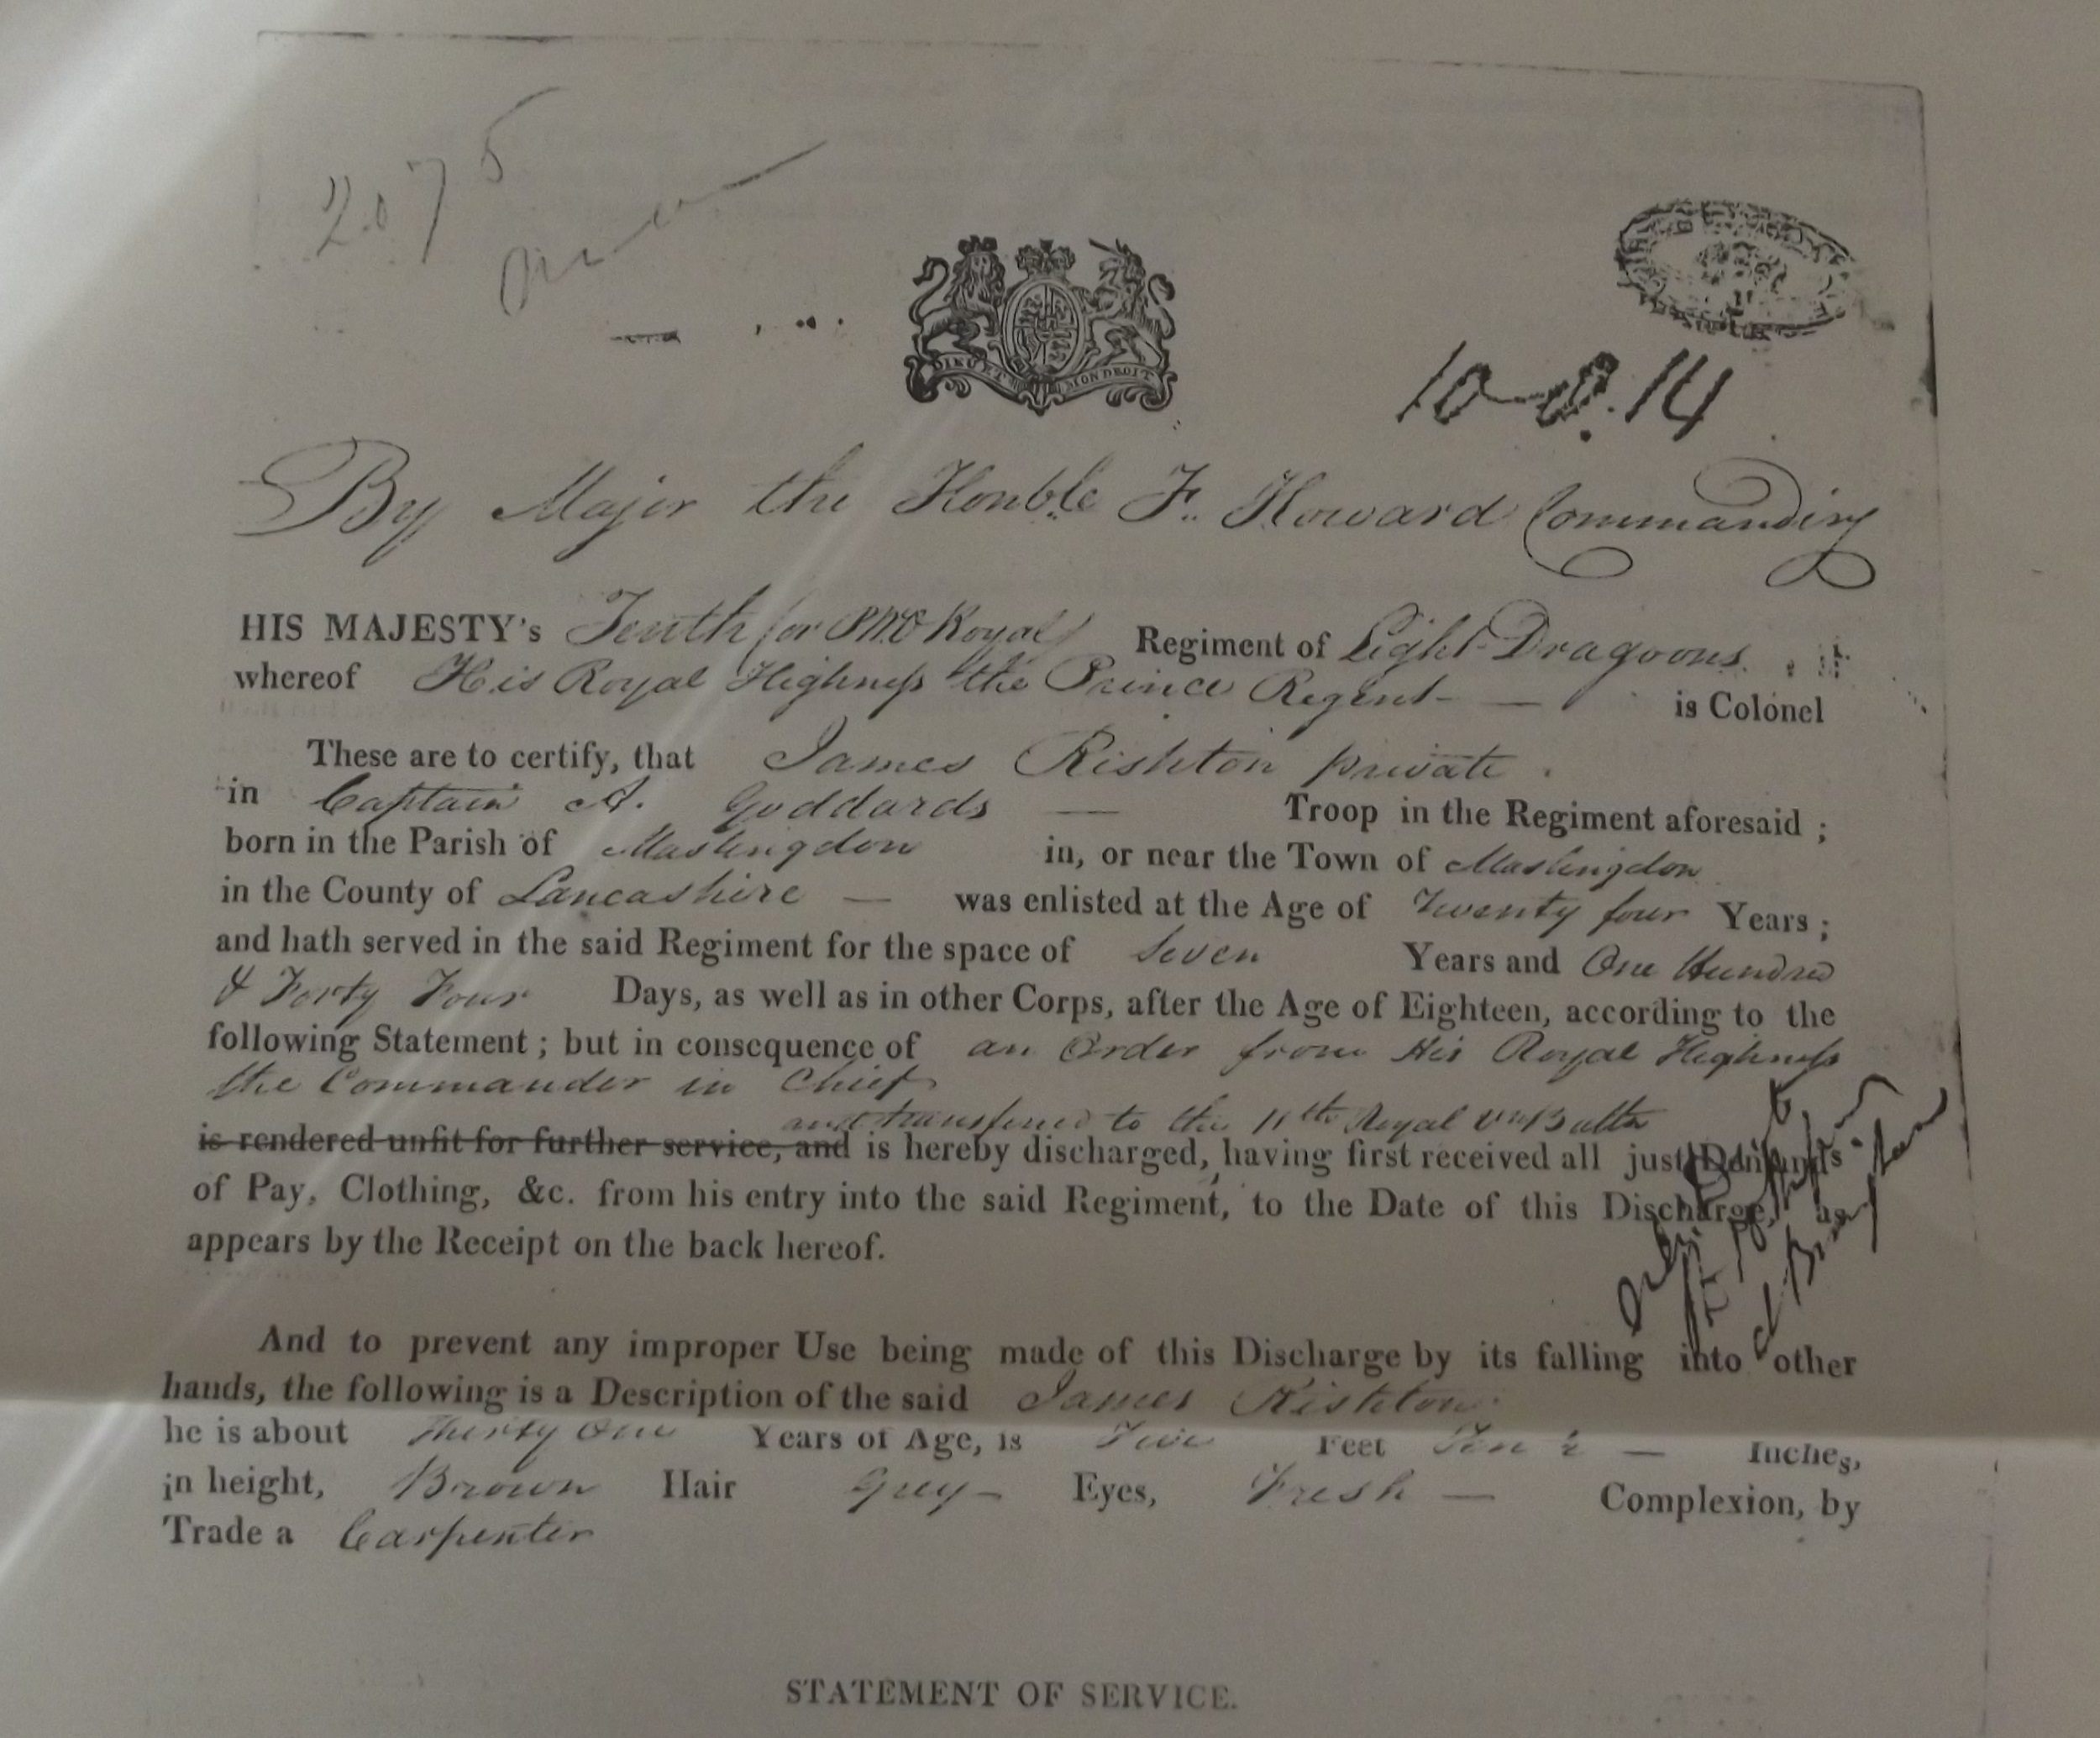 2075
DIEU ET MON DROIT
By Major the Honble F. Howard Commanding
HIS MAJESTY's Tenth (or P.W.O Royal) Regiment of Light Dragoons.
whereof His Royal Highness the Prince Regent — is Colonel
These are to certify, that James Rishton private
in Captain A. Goddards — Troop in the Regiment aforesaid ;
born in the Parish of Maslingdon in, or near the Town of Maslingdon
in the County of Lancashire — was enlisted at the Age of Twenty four Years ;
and hath served in the said Regiment for the space of Seven Years and One Hundred
& Forty Four Days, as well as in other Corps, after the Age of Eighteen, according to the
following Statement ; but in consequence of an Order from His Royal Highness
the Commander in Chief
and transferred to the 11th Royal Vn Battn
is rendered unfit for further service, and is hereby discharged, having first received all just Demands
of Pay, Clothing, &c. from his entry into the said Regiment, to the Date of this Discharge, as
appears by the Receipt on the back hereof.
And to prevent any improper Use being made of this Discharge by its falling into other
hands, the following is a Description of the said James Rishton.
he is about Thirty One Years of Age, is Five Feet Ten ½ — Inches,
in height, Brown Hair Grey — Eyes, Fresh — Complexion, by
Trade a Carpenter
STATEMENT OF SERVICE.